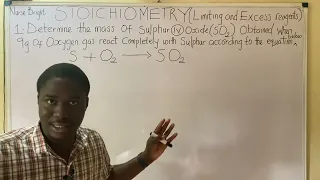 Nurse Bright STOICHIOMETRY (Limiting and Excess reagents)
1. Determine the mass of Sulphur (IV) Oxode (SO₂) Obtained when
9g of Oxygen gas react Completely with Sulphur according to the equation below
S + O₂ → SO₂